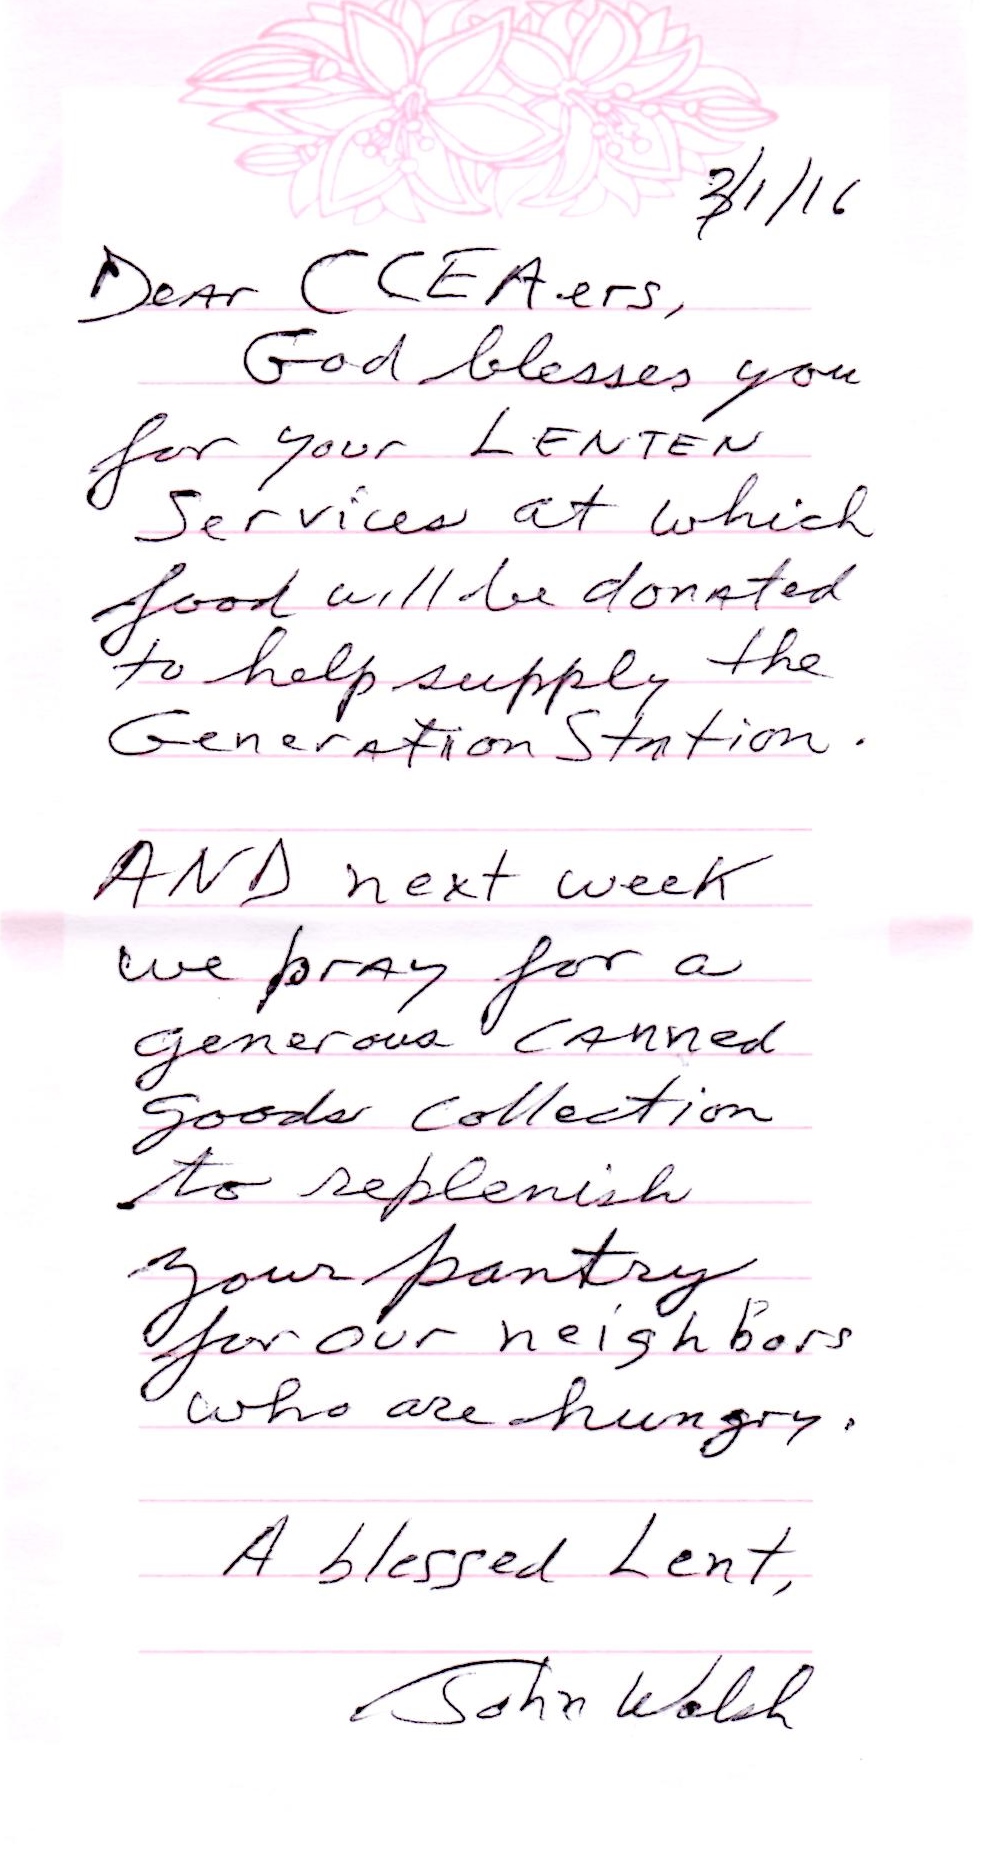 3/1/16
Dear CCEA.ers,
God blesses you
for your LENTEN
Services at which
food will be donated
to help supply the
Generation Station.
AND next week
we pray for a
generous canned
goods collection
to replenish
your pantry
for our neighbors
who are hungry.
A blessed Lent,
John Walsh